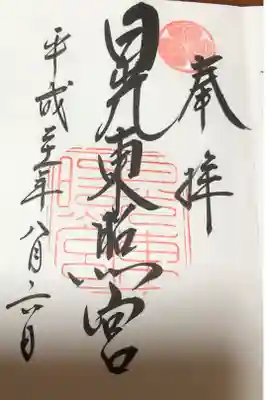 奉拝
日光東照宮
平成年八月六日